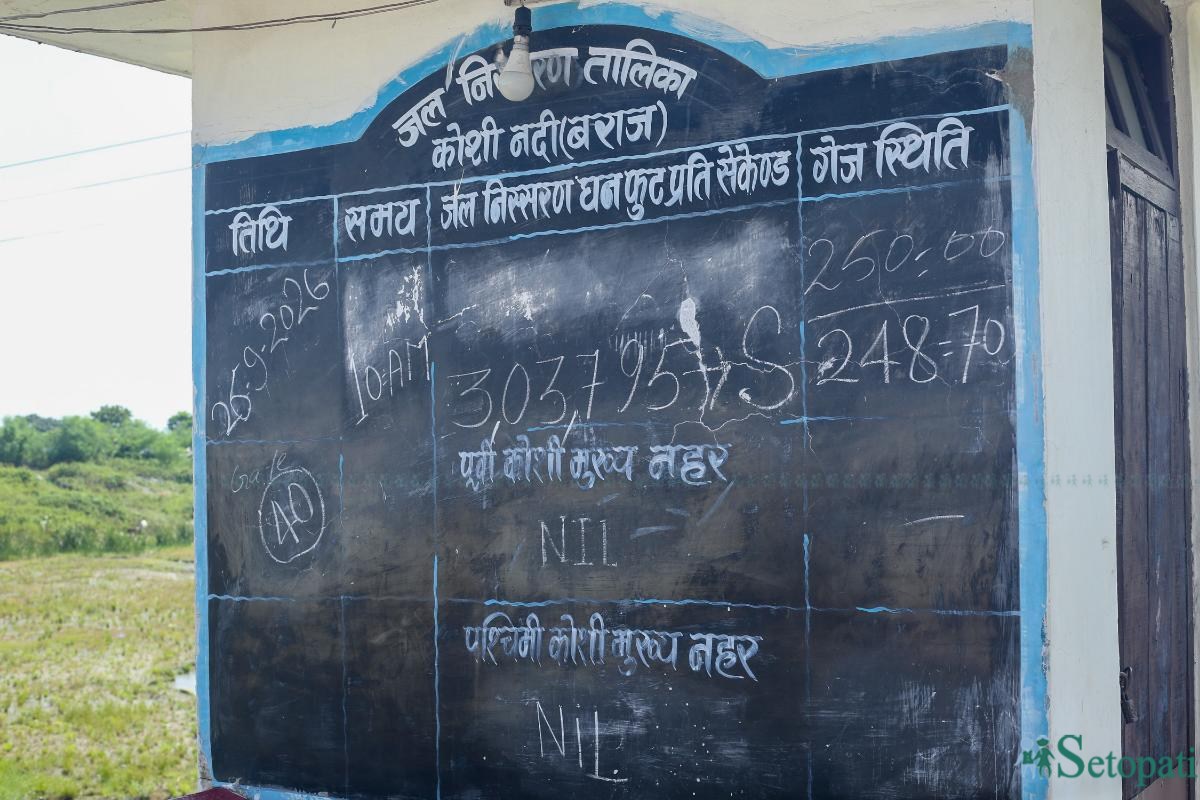 जल निस्सरण तालिका
कोशी नदी(बराज)
तिथि समय जल निस्सरण घन फुट प्रति सेकेण्ड गेज स्थिति
26-9-2026 10=AM 3,03,795+S 250=00
248=70
पूर्वी कोशी मुख्य नहर
Gate
40
NIL
पश्चिमी कोशी मुख्य नहर
NIL
Setopati